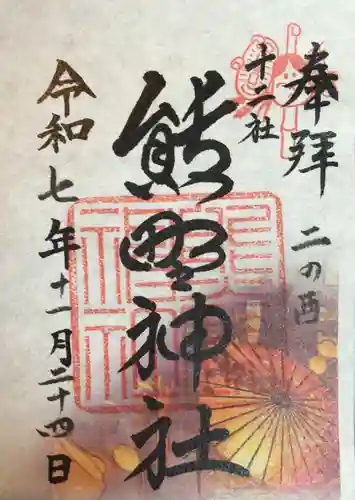 奉拝
二の酉
十二社
熊野神社
令和七年十一月二十四日